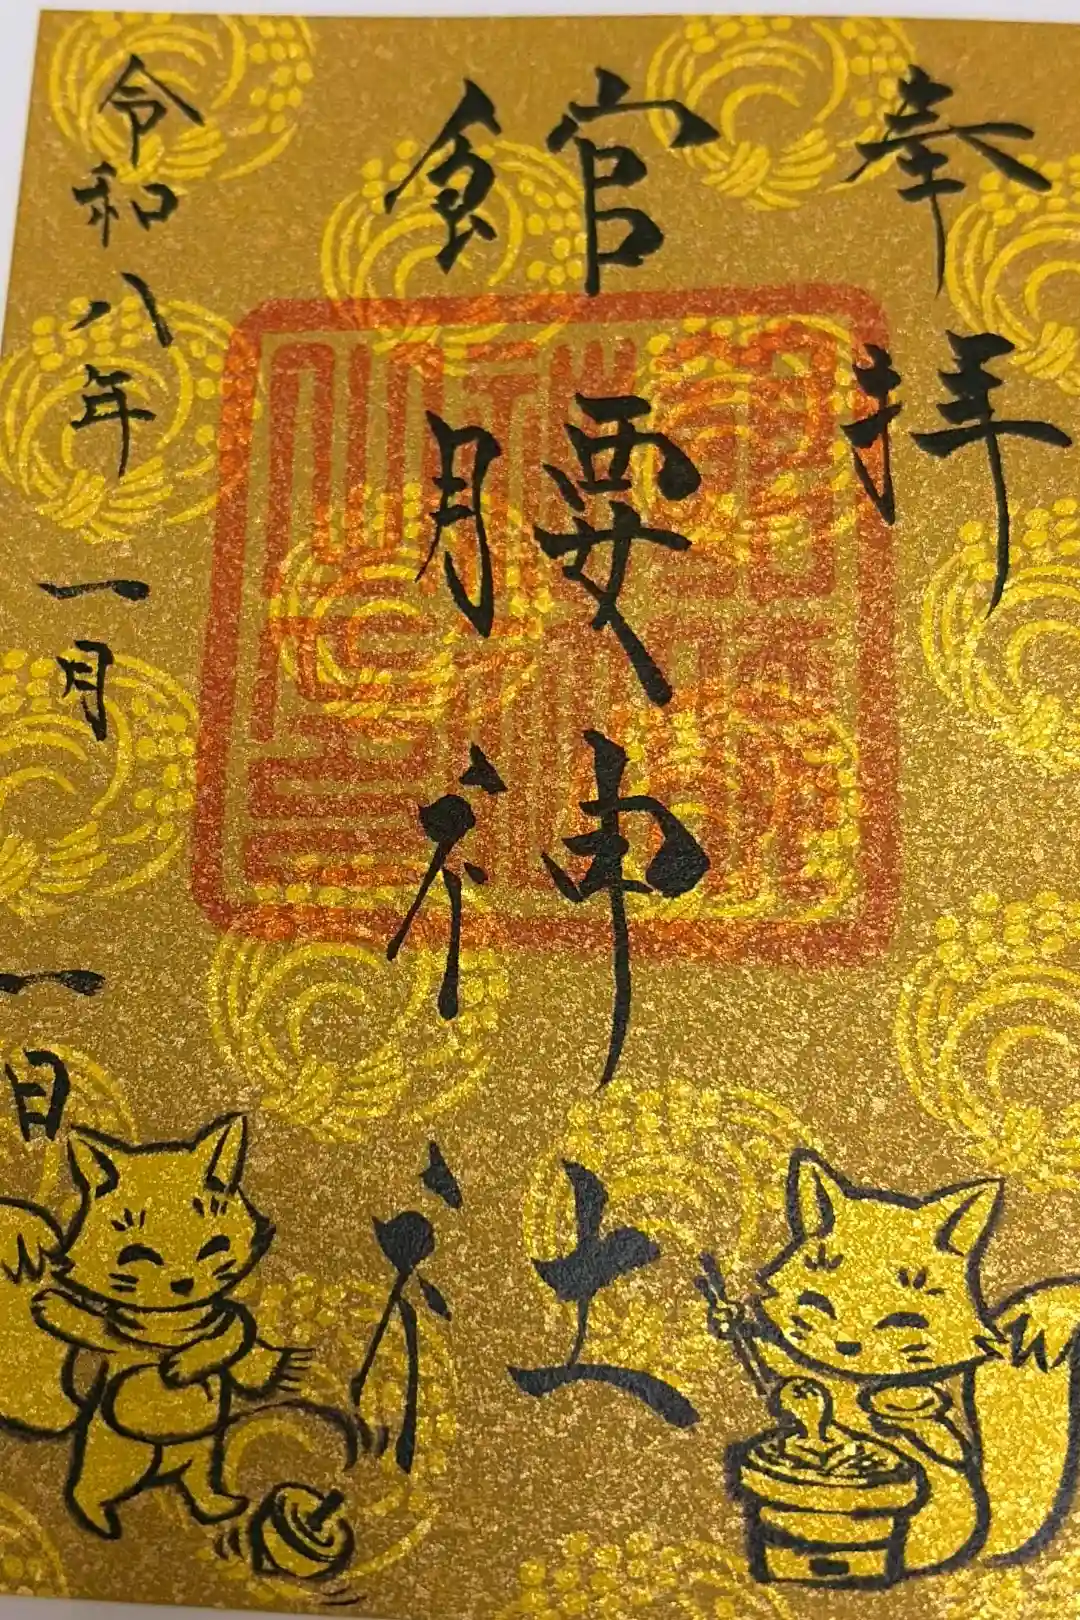 奉拝
館腰神社
令和八年一月一日